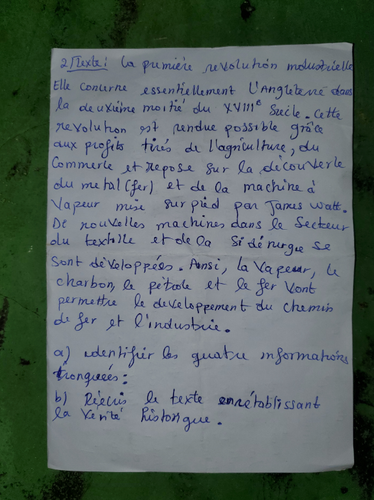 2/Texte: la première revolution industrielle
Elle concerne essentiellement L'Angleterre dans
la deuxième moitié du XVIIIe Siècle. Cette
revolution est rendue possible grâce
aux profits tirés de l'agriculture, du
Commerce et repose sur la découverte
du metal (fer) et de la machine à
Vapeur mise sur pied par James Watt.
De nouvelles machines dans le Secteur
du textile et de la Sidérurgie se
Sont développées. Ainsi, la Vapeur, le
charbon, le pétrole et le fer vont
permettre le developpement du chemin
de fer et l'industrie.
a) identifier les quatre informations
tronquées:
b) Réécris le texte en rétablissant
la Vérité historique.